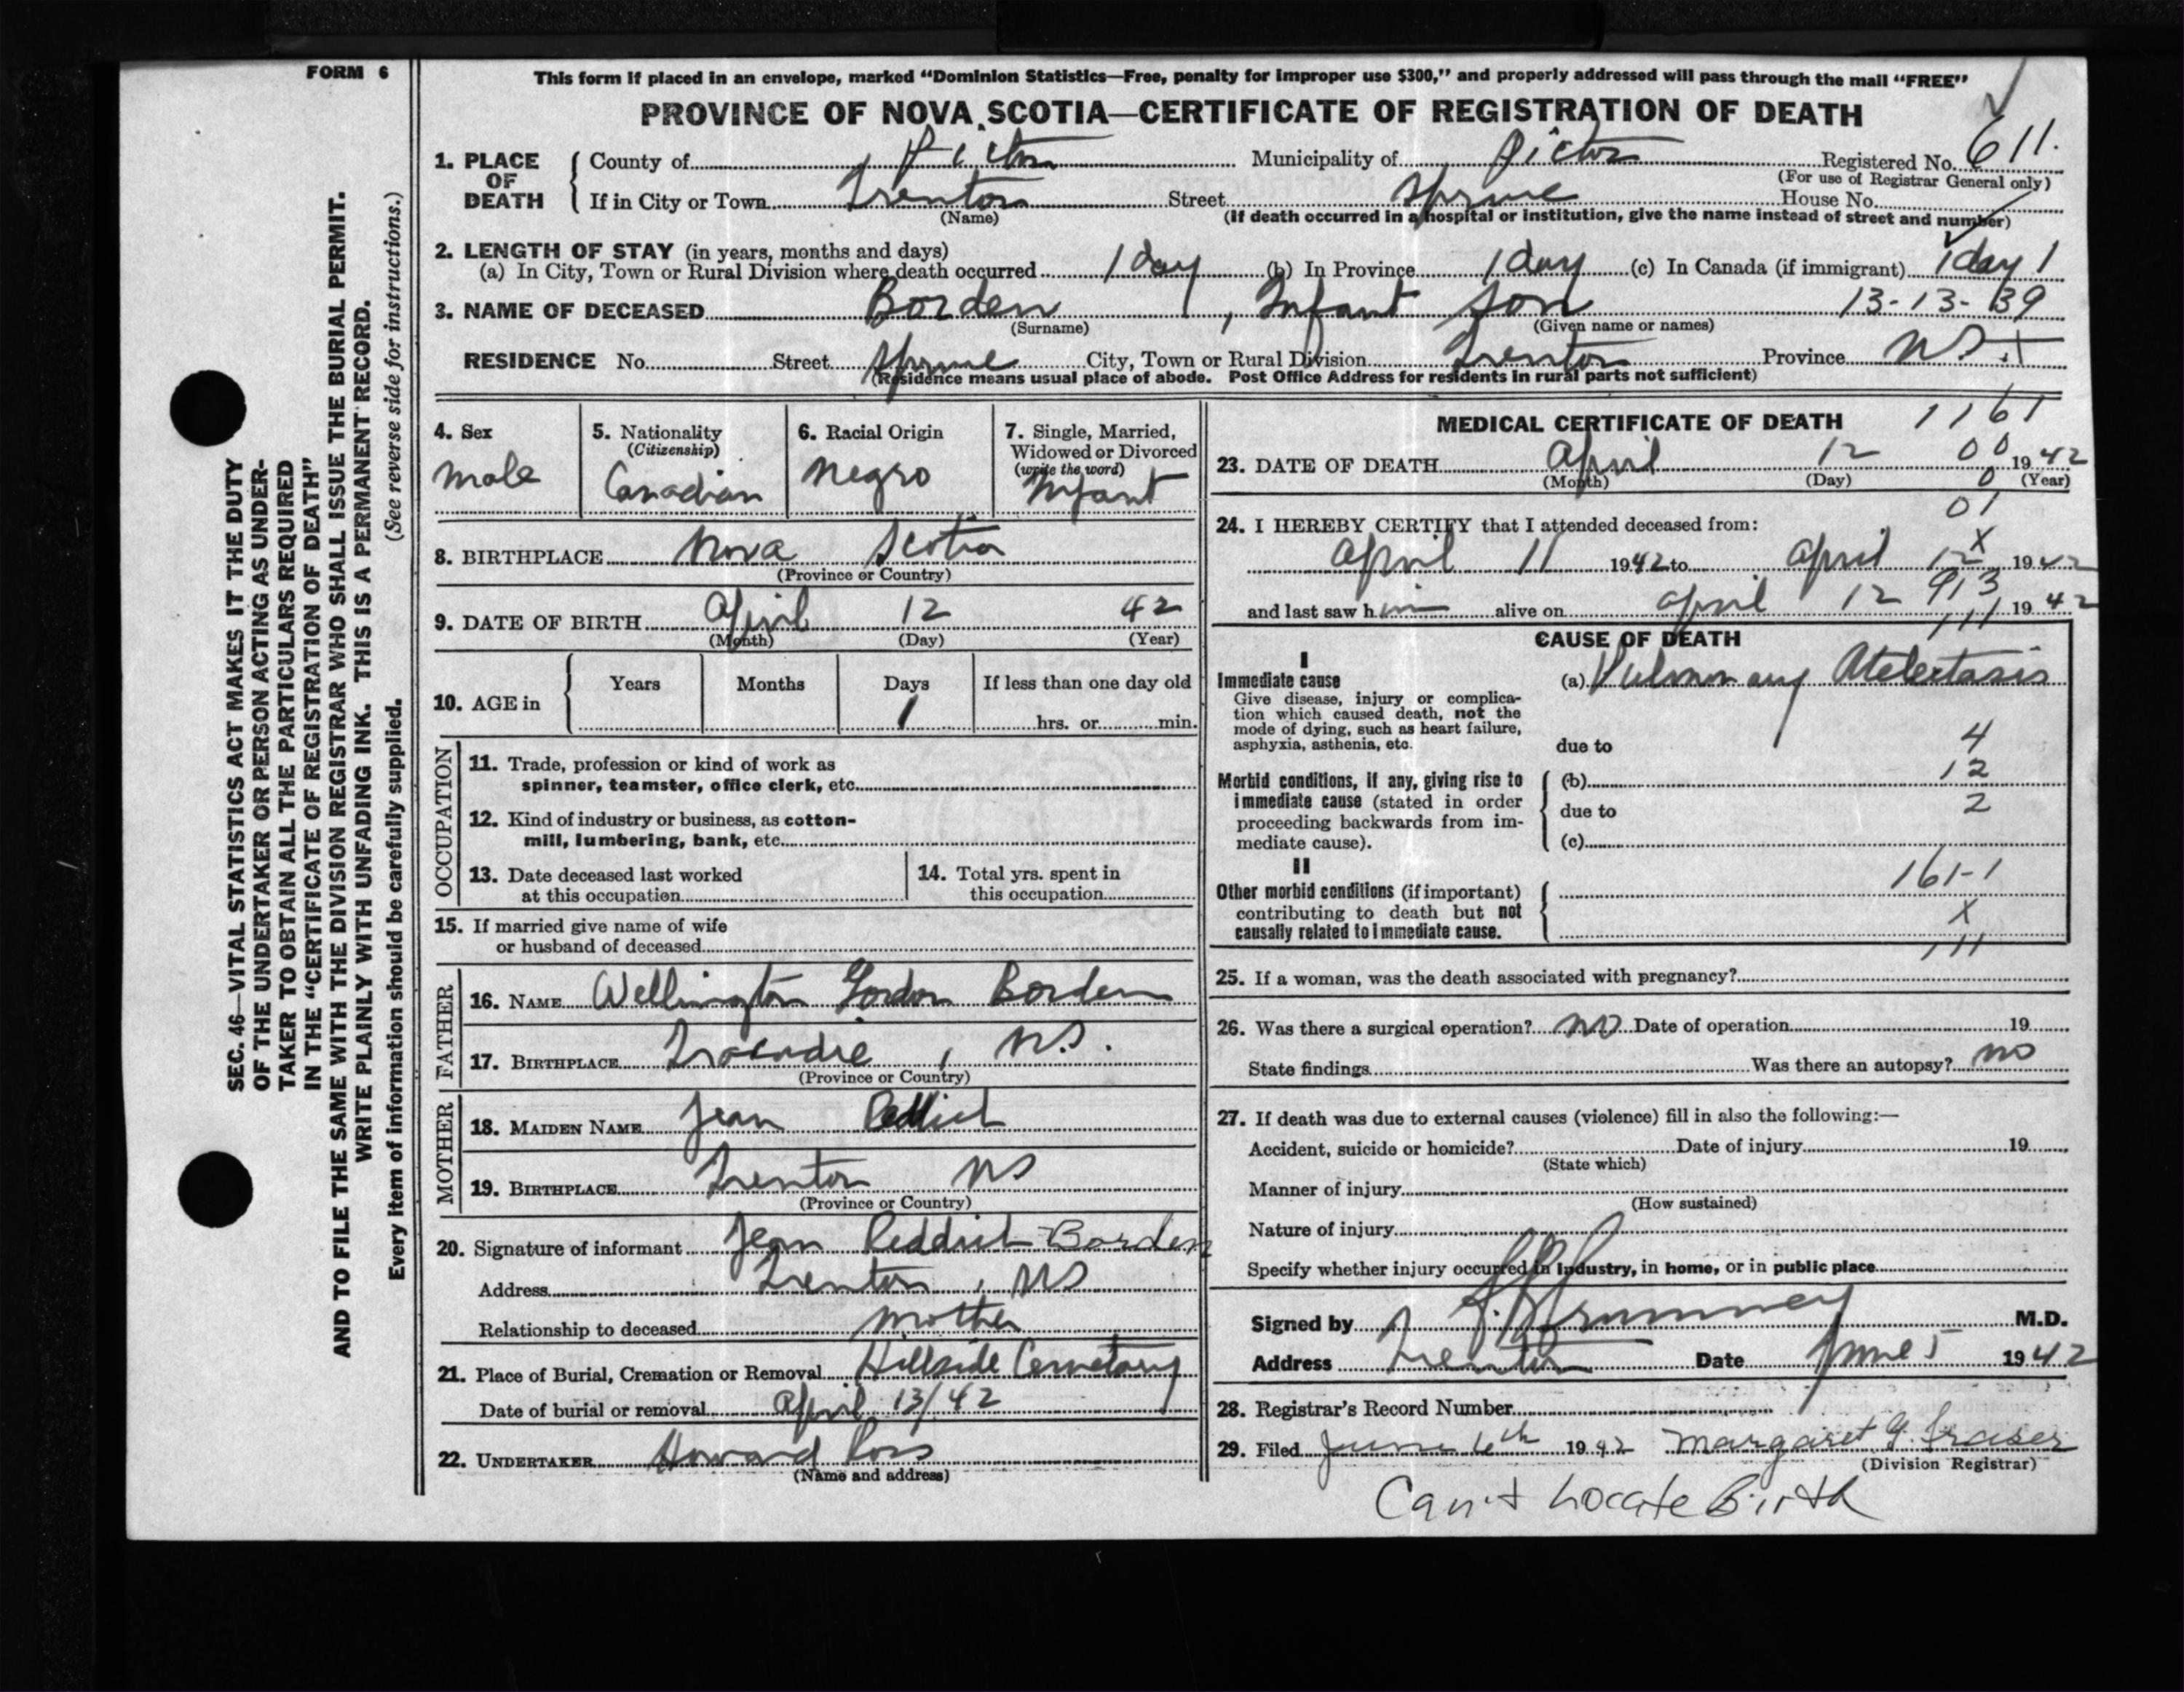 FORM 6
This form if placed in an envelope, marked "Dominion Statistics—Free, penalty for improper use $300," and properly addressed will pass through the mail "FREE"
PROVINCE OF NOVA SCOTIA—CERTIFICATE OF REGISTRATION OF DEATH
1. PLACE OF DEATH { County of Pictou Municipality of Pictou Registered No. 611.
(For use of Registrar General only)
If in City or Town Trenton Street Spruce House No.
(Name) (If death occurred in a hospital or institution, give the name instead of street and number)
2. LENGTH OF STAY (in years, months and days)
(a) In City, Town or Rural Division where death occurred 1 day (b) In Province 1 day (c) In Canada (if immigrant) 1 day 1
3. NAME OF DECEASED Borden, Infant Son 13-13-39
(Surname) (Given name or names)
RESIDENCE No. Street Spruce City, Town or Rural Division Trenton Province N.S.
(Residence means usual place of abode. Post Office Address for residents in rural parts not sufficient)
4. Sex
male
5. Nationality
(Citizenship)
Canadian
6. Racial Origin
Negro
7. Single, Married,
Widowed or Divorced
(write the word)
Infant
8. BIRTHPLACE Nova Scotia
(Province or Country)
9. DATE OF BIRTH April 12 42
(Month) (Day) (Year)
10. AGE in { Years Months Days If less than one day old
1 hrs. or min.
OCCUPATION
11. Trade, profession or kind of work as
spinner, teamster, office clerk, etc.
12. Kind of industry or business, as cotton-
mill, lumbering, bank, etc.
13. Date deceased last worked
at this occupation
14. Total yrs. spent in
this occupation
15. If married give name of wife
or husband of deceased
FATHER
16. NAME Wellington Gordon Borden
17. BIRTHPLACE Tracadie, N.S.
(Province or Country)
MOTHER
18. MAIDEN NAME Jean Reddick
19. BIRTHPLACE Trenton NS
(Province or Country)
20. Signature of informant Jean Reddick Borden
Address Trenton, NS
Relationship to deceased mother
21. Place of Burial, Cremation or Removal Hillside Cemetary
Date of burial or removal April 13/42
22. UNDERTAKER Howard Ross
(Name and address)
MEDICAL CERTIFICATE OF DEATH 1161
23. DATE OF DEATH April 12 00 1942
(Month) (Day) 0 (Year)
01
24. I HEREBY CERTIFY that I attended deceased from:
X
April 11 1942 to April 12 1942
913
and last saw him alive on April 12 1942
111
CAUSE OF DEATH
I
Immediate cause
Give disease, injury or complica-
tion which caused death, not the
mode of dying, such as heart failure,
asphyxia, asthenia, etc.
(a) Pulmonary Atelectasis
due to 4
Morbid conditions, if any, giving rise to
immediate cause (stated in order
proceeding backwards from im-
mediate cause).
(b) 12
due to 2
(c)
II
Other morbid conditions (if important)
contributing to death but not
causally related to immediate cause.
161-1
X
111
25. If a woman, was the death associated with pregnancy?
26. Was there a surgical operation? no Date of operation 19
State findings Was there an autopsy? no
27. If death was due to external causes (violence) fill in also the following:—
Accident, suicide or homicide? Date of injury 19
(State which)
Manner of injury
(How sustained)
Nature of injury
Specify whether injury occurred in industry, in home, or in public place
Signed by M.D.
Address Trenton Date June 5 1942
28. Registrar's Record Number
29. Filed June 6th 1942 Margaret G. Fraser
(Division Registrar)
Can't Locate Birth
SEC. 46—VITAL STATISTICS ACT MAKES IT THE DUTY
OF THE UNDERTAKER OR PERSON ACTING AS UNDER-
TAKER TO OBTAIN ALL THE PARTICULARS REQUIRED
IN THE "CERTIFICATE OF REGISTRATION OF DEATH"
AND TO FILE THE SAME WITH THE DIVISION REGISTRAR WHO SHALL ISSUE THE BURIAL PERMIT.
WRITE PLAINLY WITH UNFADING INK. THIS IS A PERMANENT RECORD.
Every item of information should be carefully supplied. (See reverse side for instructions.)